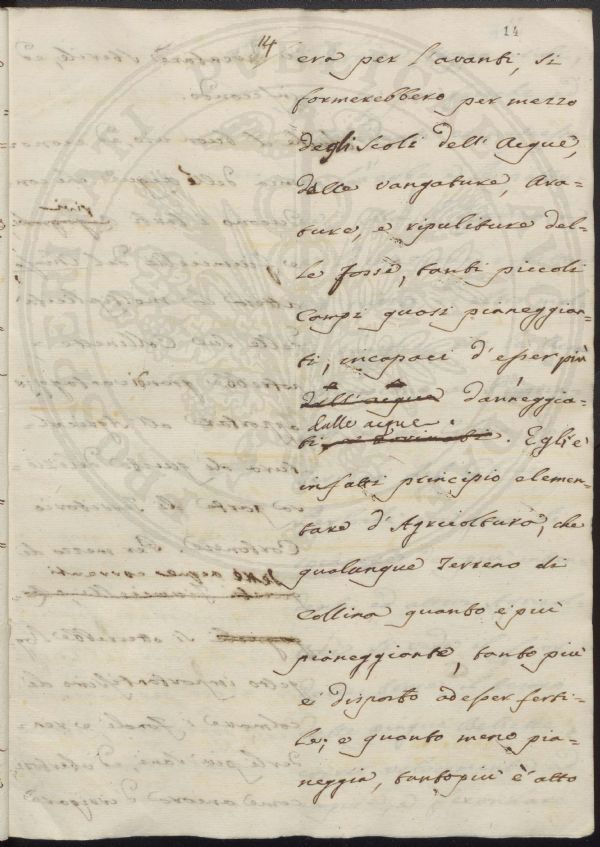 14
14
era per l'avanti, si
formerebbero per mezzo
degli scoli dell'Acque,
delle vangature, Ara=
ture, e ripuliture del=
le fosse, tanti piccoli
Campi quasi pianeggian=
ti, incapaci d'esser più
dall'acque danneggia=
dalle acque.
ti, . Egli è
infatti principio elemen=
tare d'Agricoltura, che
qualunque Terreno di
Collina quanto è più
pianeggiante, tanto più
è disposto ad esser ferti=
le; e quanto meno pia=
neggia, tanto più è atto